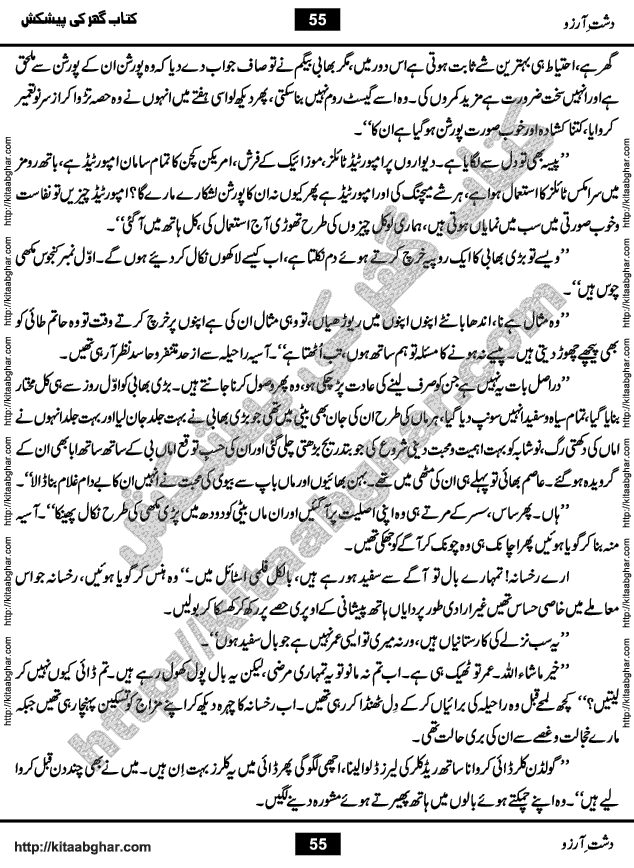 کتاب گھر کی پیشکش 55 دشتِ آرزو
گھر ہے، احتیاط ہی بہترین شے ثابت ہوتی ہے اس دور میں، مگر بھابی بیگم نے تو صاف جواب دے دیا کہ وہ پورشن ان کے پورشن سے ملحق
ہے اور انہیں سخت ضرورت ہے مزید کمروں کی۔ وہ اسے گیسٹ روم نہیں بنا سکتی، پھر دیکھ لو اسی ہفتے میں انہوں نے وہ حصہ تڑوا کر از سر نو تعمیر
کروایا، کتنا کشادہ اور خوب صورت پورشن ہو گیا ہے ان کا‘‘۔
’’پیسہ بھی تو دل سے لگایا ہے۔ دیواروں پر امپورٹیڈ ٹائلز، موزائیک کے فرش، امریکن کچن کا تمام سامان امپورٹیڈ ہے، باتھ رومز
میں سرامکس ٹائلز کا استعمال ہوا ہے، ہر شے میچنگ کی اور امپورٹیڈ ہے پھر کیوں نہ ان کا پورشن لشکارے مارے گا؟ امپورٹیڈ چیزیں تو نفاست
و خوب صورتی میں سب میں نمایاں ہوتی ہیں، ہماری لوکل چیزوں کی طرح تھوڑی آج استعمال کی، کل ہاتھ میں آ گئی‘‘۔
’’ویسے تو بڑی بھابی کا ایک روپیہ خرچ کرتے ہوئے دم نکلتا ہے، اب کیسے لاکھوں نکال کر دیئے ہوں گے۔ اوّل نمبر کنجوس مکھی
چوس ہیں‘‘۔
’’وہ مثال ہے نا، اندھا بانٹے اپنوں اپنوں میں ریوڑھیاں، تو وہی مثال ان کی ہے اپنوں پر خرچ کرتے وقت تو وہ حاتم طائی کو
بھی پیچھے چھوڑ دیتی ہیں۔ پیسے نہ ہونے کا مسئلہ تو ہم ساتھ ہوں، تب اُٹھتا ہے‘‘۔ آسیہ راحیلہ سے از حد متنفر و حاسد نظر آ رہی تھیں۔
’’دراصل بات یہ نہیں ہے جن کو صرف لینے کی عادت پڑ چکی ہو، وہ پھر وصول کرنا جانتے ہیں۔ بڑی بھابی کو اوّل روز سے ہی کل مختار
بنایا گیا، تمام سیاہ و سفید انہیں سونپ دیا گیا، ہر ماں کی طرح ان کی جان بھی بیٹی میں تھی، جو بڑی بھابی نے بہت جلد جان لیا اور بہت جلد انہوں نے
اماں کی دکھتی رگ، نوشابہ کو بہت اہمیت و محبت دینی شروع کی جو بتدریج بڑھتی چلی گئی اور ان کی حسبِ توقع اماں بی کے ساتھ ساتھ ابا بھی ان کے
گرویدہ ہو گئے۔ عاصم بھائی تو پہلے ہی ان کی مٹھی میں تھے۔ بہن بھائیوں اور ماں باپ سے بیوی کی محبت نے انہیں ان کا بے دام غلام بنا ڈالا‘‘۔
’’ہاں۔ پھر ساس، سسر کے مرتے ہی وہ اپنی اصلیت پر آ گئیں اور ان ماں بیٹی کو دودھ میں پڑی مکھی کی طرح نکال پھینکا‘‘۔ آسیہ
منہ بنا کر گویا ہوئیں پھر اچانک ہی وہ چونک کر آگے کو جھکی تھیں۔
ارے رخسانہ! تمہارے بال تو آگے سے سفید ہو رہے ہیں، بالکل فلمی اسٹائل میں۔‘‘ وہ ہنس کر گویا ہوئیں، رخسانہ جو اس
معاملے میں خاصی حساس تھیں غیر ارادی طور پر دایاں ہاتھ پیشانی کے اوپری حصے پر رکھ کر کھسکا کر بولیں۔
’’یہ سب نزلے کی کارستانیاں ہیں، ورنہ میری تو ایسی عمر نہیں ہے جو بال سفید ہوں‘‘۔
’’خیر ماشاء اللہ۔ عمر تو ٹھیک ہی ہے۔ اب تم نہ مانو تو یہ تمہاری مرضی، لیکن یہ بال پول کھول رہے ہیں۔ تم ڈائی کیوں نہیں کر
لیتیں؟‘‘ کچھ لمحے قبل وہ راحیلہ کی برائیاں کر کے دِل ٹھنڈا کر رہی تھیں۔ اب رخسانہ کا چہرہ دیکھ کر اپنے مزاج کو تسکین پہنچا رہی تھیں جبکہ
مارے خجالت و غصے سے ان کی بری حالت تھی۔
’’گولڈن کلر ڈائی کروانا ساتھ ریڈ کلر کی لیرز ڈلوا لینا، اچھی لگو گی پھر ڈائی میں یہ کلرز بہت اِن ہیں۔ میں نے بھی چند دن قبل کروا
لیے ہیں‘‘۔ وہ اپنے چمکتے ہوئے بالوں میں ہاتھ پھیرتے ہوئے مشورہ دینے لگیں۔
http://kitaabghar.com 55 دشتِ آرزو
http://kitaabghar.com
کتاب گھر کی پیشکش
http://kitaabghar.com